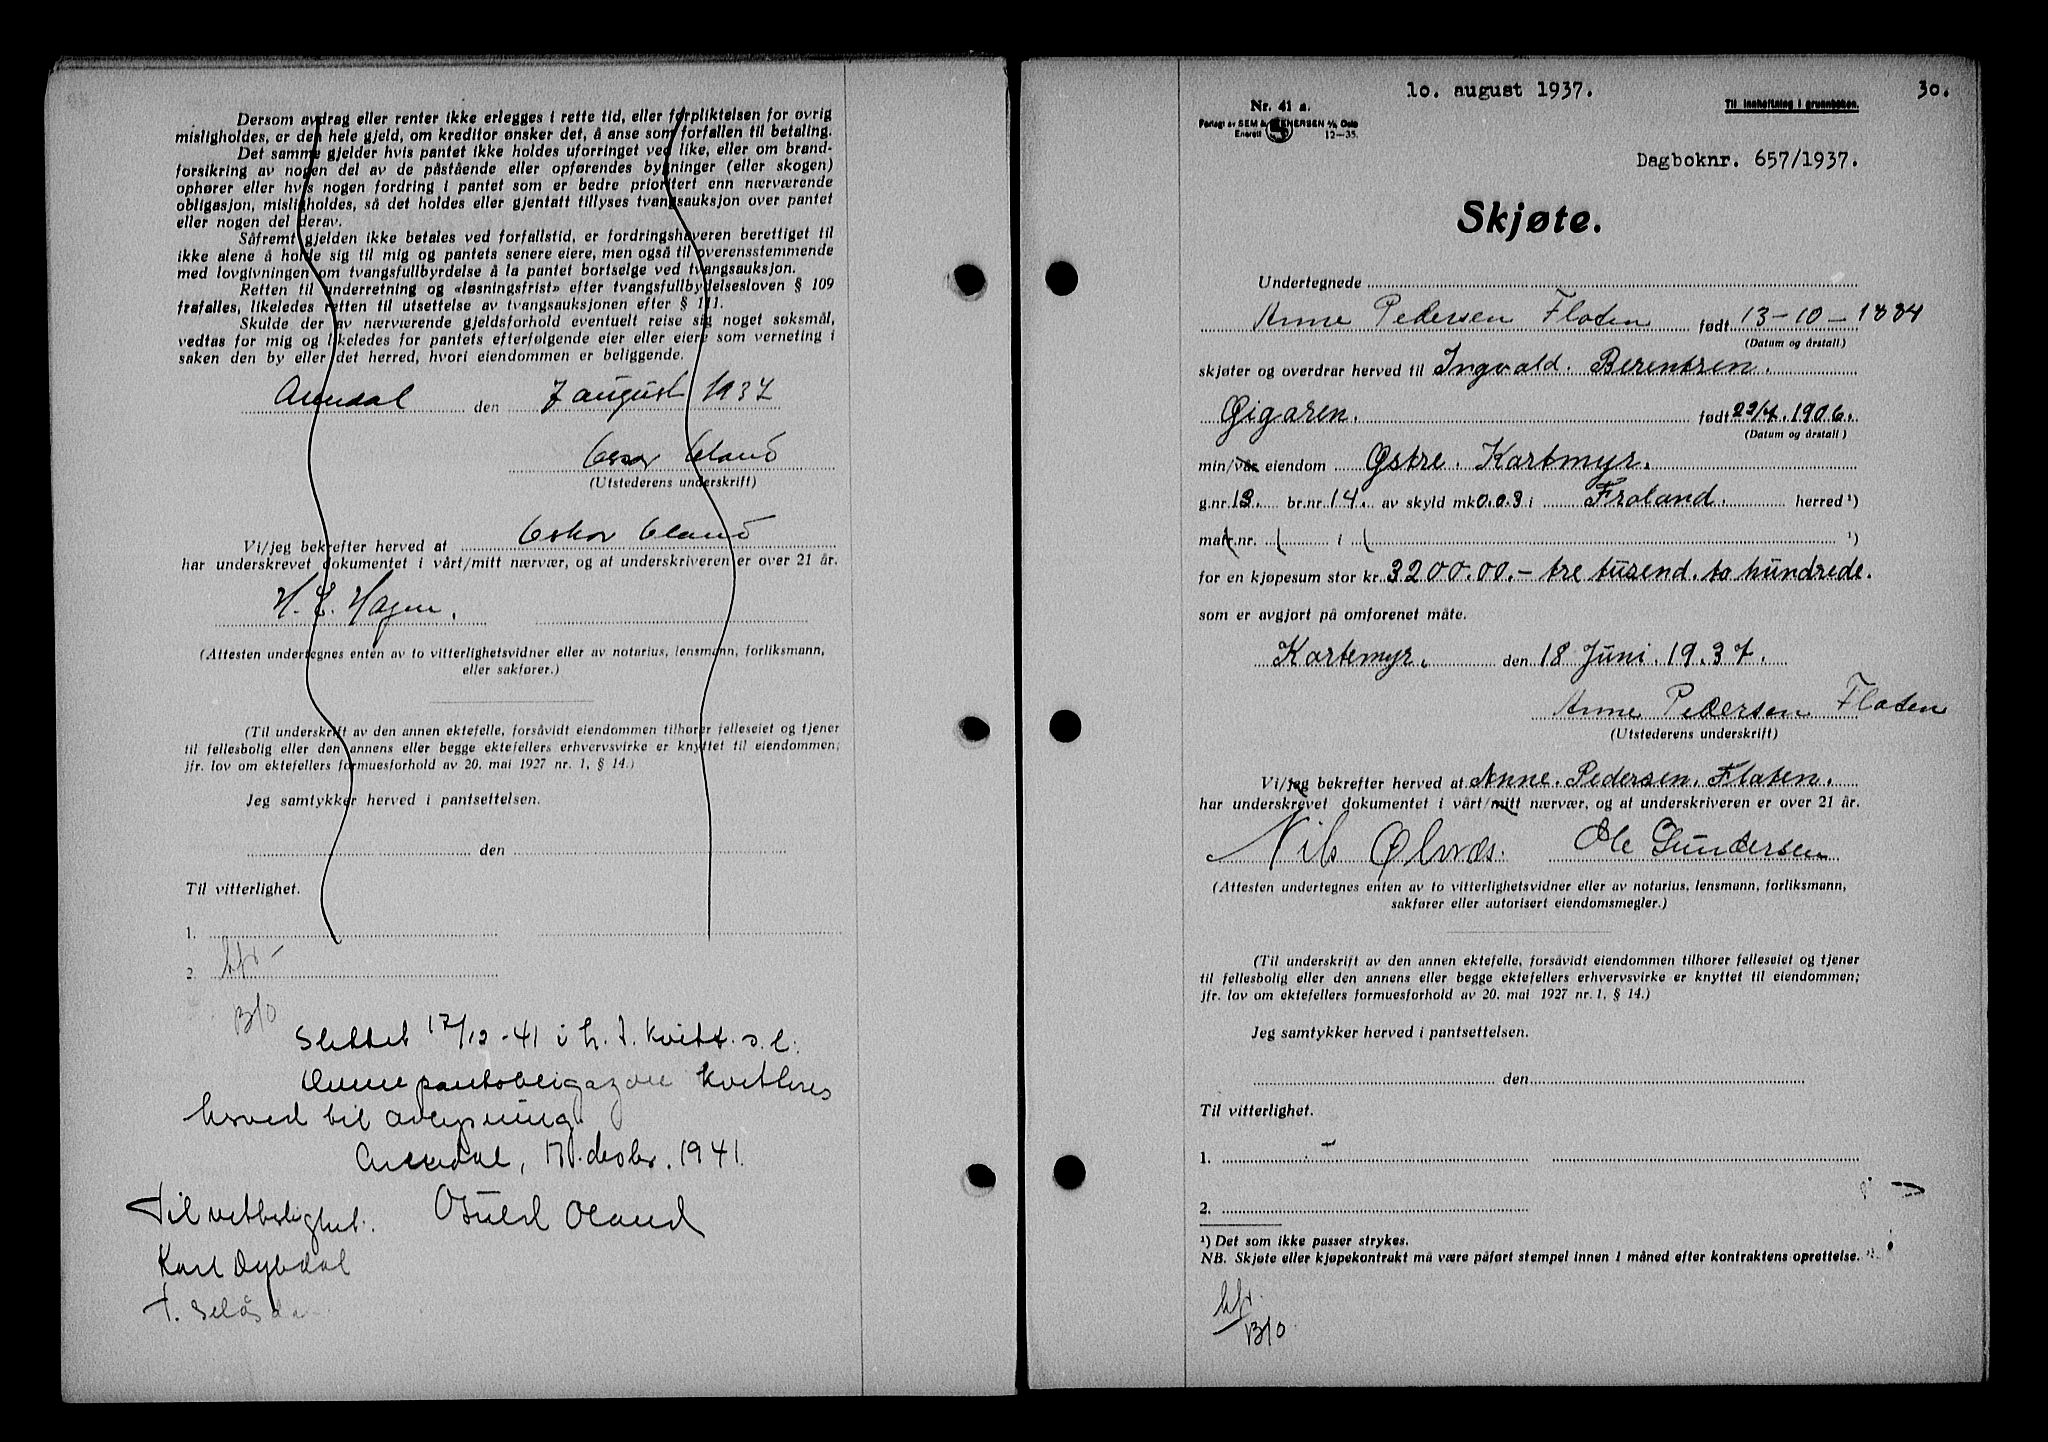 Dersom avdrag eller renter ikke erlegges i rette tid, eller forpliktelsen for øvrig
misligholdes, er den hele gjeld, om kreditor ønsker det, å anse som forfallen til betaling.
Det samme gjelder hvis pantet ikke holdes uforringet ved like, eller om brand-
forsikring av nogen del av de påstående eller opførendes bygninger (eller skogen)
ophører eller hvis nogen fordring i pantet som er bedre prioritert enn nærværende
obligasjon, misligholdes, så det holdes eller gjentatt tillyses tvangsauksjon over pantet
eller nogen del derav.
Såfremt gjelden ikke betales ved forfallstid, er fordringshaveren berettiget til
ikke alene å holde sig til mig og pantets senere eiere, men også til overensstemmende
med lovgivningen om tvangsfullbyrdelse å la pantet bortselge ved tvangsauksjon.
Retten til underretning og «løsningsfrist» efter tvangsfullbyrdelsesloven § 109
frafalles, likeledes retten til utsettelse av tvangsauksjonen efter § 111.
Skulde der av nærværende gjeldsforhold eventuelt reise sig noget søksmål,
vedtas for mig og likeledes for pantets efterfølgende eier eller eiere som verneting i
saken den by eller det herred, hvori eiendommen er beliggende.
Arendal den 7 august 1937
Oskar Oland
(Utstederens underskrift)
Vi/jeg bekrefter herved at Oskar Oland
har underskrevet dokumentet i vårt/mitt nærvær, og at underskriveren er over 21 år.
H. E. Hagen.
(Attesten undertegnes enten av to vitterlighetsvidner eller av notarius, lensmann, forliksmann,
eller sakfører.)
(Til underskrift av den annen ektefelle, forsåvidt eiendommen tilhører felleseiet og tjener
til fellesbolig eller den annens eller begge ektefellers erhvervsvirke er knyttet til eiendommen;
jfr. lov om ektefellers formuesforhold av 20. mai 1927 nr. 1, § 14.)
Jeg samtykker herved i pantsettelsen.
den
Til vitterlighet.
1.
2.
B/O
Slettet 17/12-41 i h. t. kvitt. s. l.
Denne pantobligasjon kvitteres
herved til avlysning.
Arendal, 17. desbr. 1941.
Til vitterlighet. Oland
Karl Dybdal
T.
10. august 1937. 30.
Nr. 41 a. Til innheftning i grunnboken.
Forlagt av SEM & STENERSEN A/S Oslo
Enerett 12-35.
Dagboknr. 657/1937.
Skjøte.
Undertegnede
Anne Pedersen Flaten født 13-10-1884
(Datum og årstall.)
skjøter og overdrar herved til Ingvald. Berentsen.
Øigaren. født 23/7. 1906.
(Datum og årstall)
min/vår eiendom Østre. Kartmyr.
g.nr. 13. br.nr. 14. av skyld mk 0.03 i Froland. herred ¹)
matr.nr. i ¹)
for en kjøpesum stor kr. 3200.00.- tre tusend. to hundrede.
som er avgjort på omforenet måte.
Kartemyr. den 18 Juni. 1937.
Anne Pedersen Flaten
(Utstederens underskrift)
Vi/jeg bekrefter herved at Anne. Pedersen. Flaten.
har underskrevet dokumentet i vårt/mitt nærvær, og at underskriveren er over 21 år.
Nils Ølnes. Ole Gundersen
(Attesten undertegnes enten av to vitterlighetsvidner eller av notarius, lensmann, forliksmann,
sakfører eller autorisert eiendomsmegler.)
(Til underskrift av den annen ektefelle, forsåvidt eiendommen tilhører felleseiet og tjener
til fellesbolig eller den annens eller begge ektefellers erhvervsvirke er knyttet til eiendommen;
jfr. lov om ektefellers formuesforhold av 20. mai 1927 nr. 1, § 14.)
Jeg samtykker herved i pantsettelsen.
den
Til vitterlighet.
1.
2.
¹) Det som ikke passer strykes.
NB. Skjøte eller kjøpekontrakt må være påført stempel innen 1 måned efter kontraktens oprettelse.
B/O